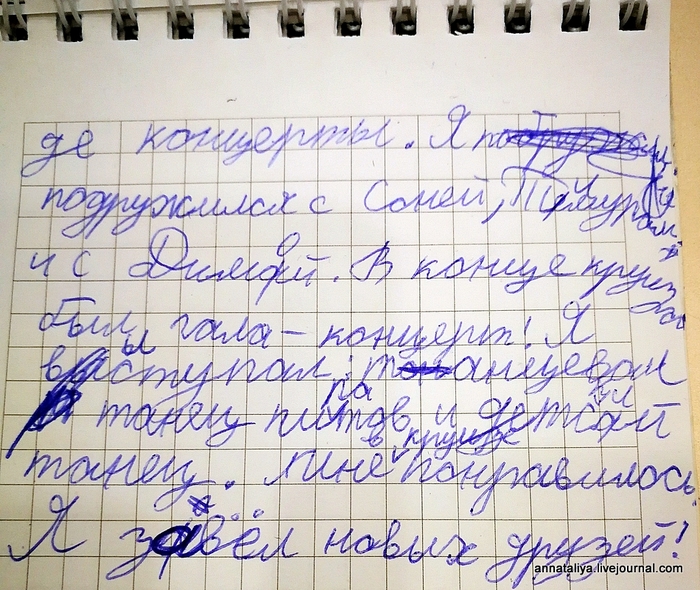 де концерты. Я
подружился с Соней, Тимуром
и с Димой. В конце круиза
был гала-концерт! Я
выступал: танцевал
танец пиратов и детский
танец. Мне в круизе понравилось.
Я завёл новых друзей!
annataliya.livejournal.com